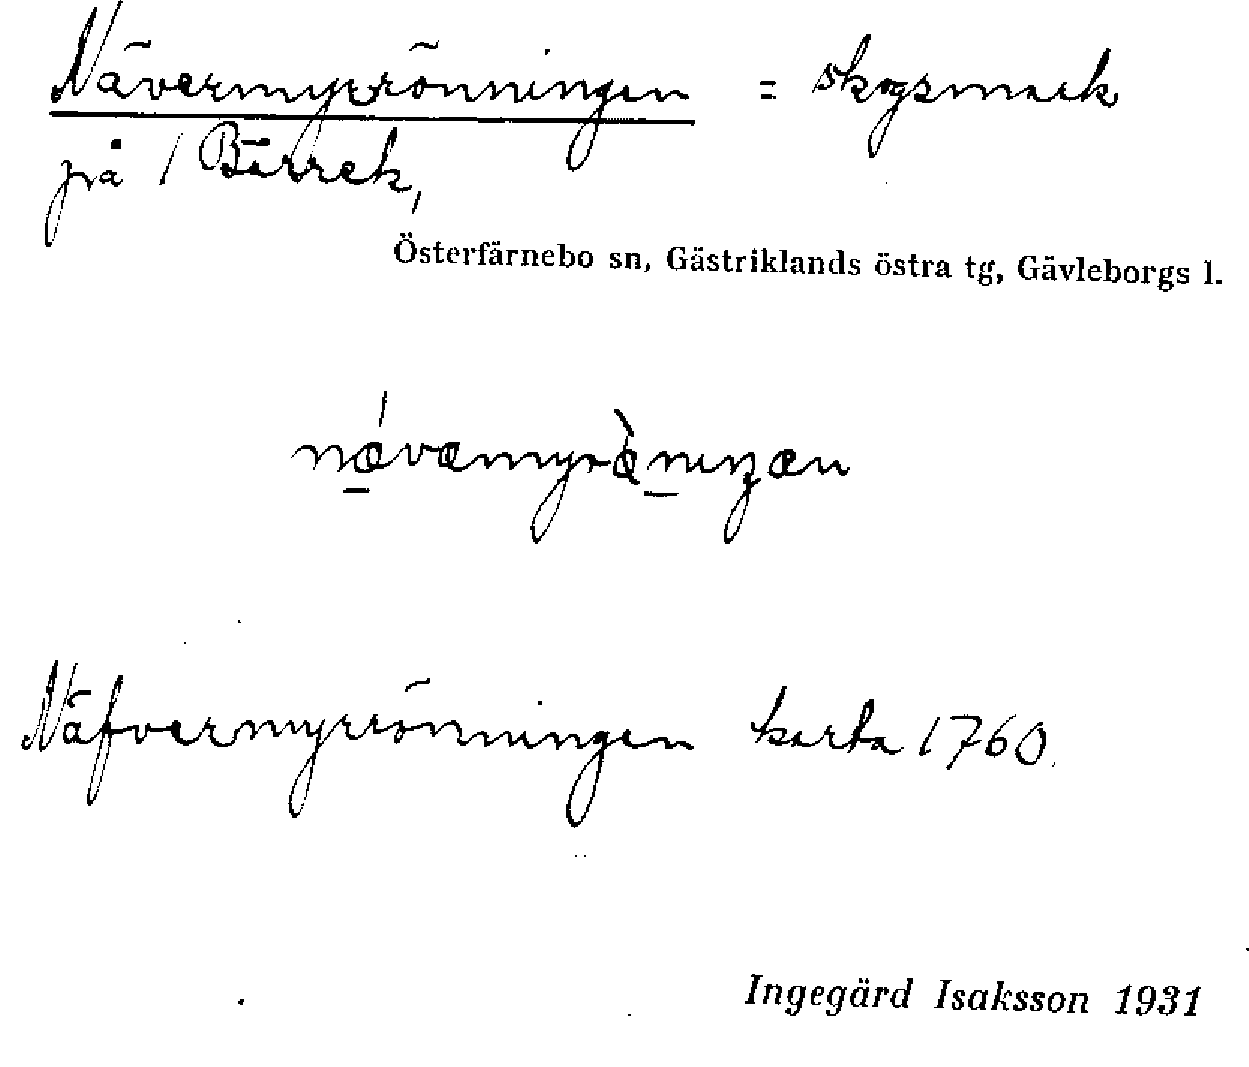 Nävermyrrönningen = skogsmark
på / Bärrek,
Österfärnebo sn, Gästriklands östra tg, Gävleborgs l.
Näfvermyrrönningen karta 1760.
Ingegärd Isaksson 1931